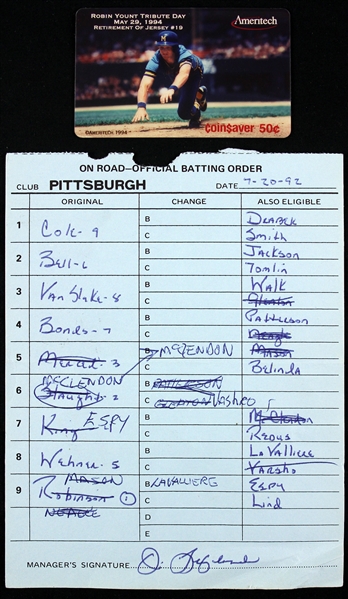 ROBIN YOUNT TRIBUTE DAY
MAY 29, 1994
RETIREMENT OF JERSEY #19
Ameritech
©AMERITECH 1994
coin$aver 50¢
ON ROAD–OFFICIAL BATTING ORDER
CLUB PITTSBURGH DATE 7-20-92
ORIGINAL CHANGE ALSO ELIGIBLE
1 Cole-9 B Drabek
C Smith
2 Bell-6 B Jackson
C Tomlin
3 Van Slyke-8 B Walk
C
4 Bonds-7 B Patterson
C Neagle
5 Merced-3 B McCLENDON Mason
C Belinda
6 McCLENDON B PATTERSON
Slaught-2 C VARSHO
7 King ESPY B McClendon
C Redus
8 Wehner-5 B LaValliere
C Varsho
9 MASON B LAVALLIERE Espy
Robinson 1 C Lind
NEAGLE D
E
MANAGER'S SIGNATURE